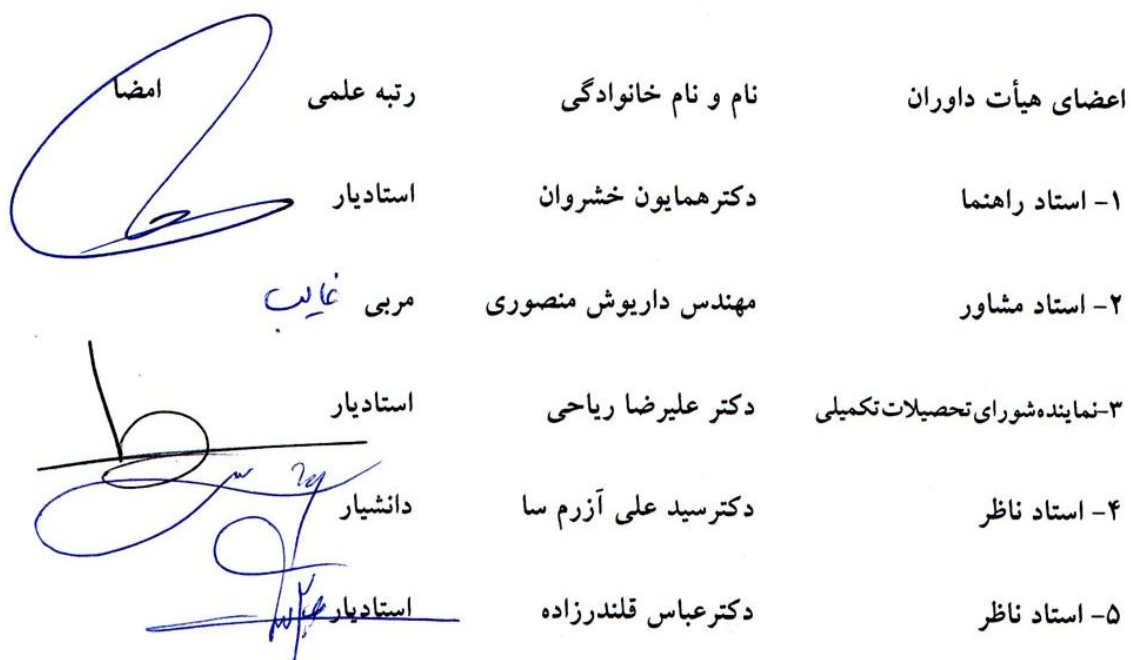 اعضای هیأت داوران نام و نام خانوادگی رتبه علمی امضا
۱- استاد راهنما دکترهمایون خشروان استادیار
۲- استاد مشاور مهندس داریوش منصوری مربی غایب
۳-نماینده‌شورای‌تحصیلات‌تکمیلی دکتر علیرضا ریاحی استادیار
۴- استاد ناظر دکترسید علی آزرم سا دانشیار
۵- استاد ناظر دکترعباس قلندرزاده استادیار